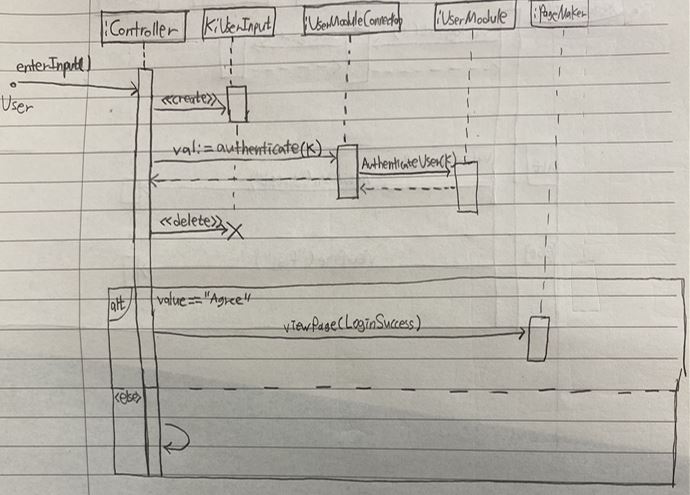 :Controller
K:UserInput
:UserModuleConnector
:UserModule
:PageMaker
enterInput()
User
<<create>>
val:=authenticate(K)
AuthenticateUser(K)
<<delete>>
alt
value=="Agree"
viewPage(LoginSuccess)
<else>